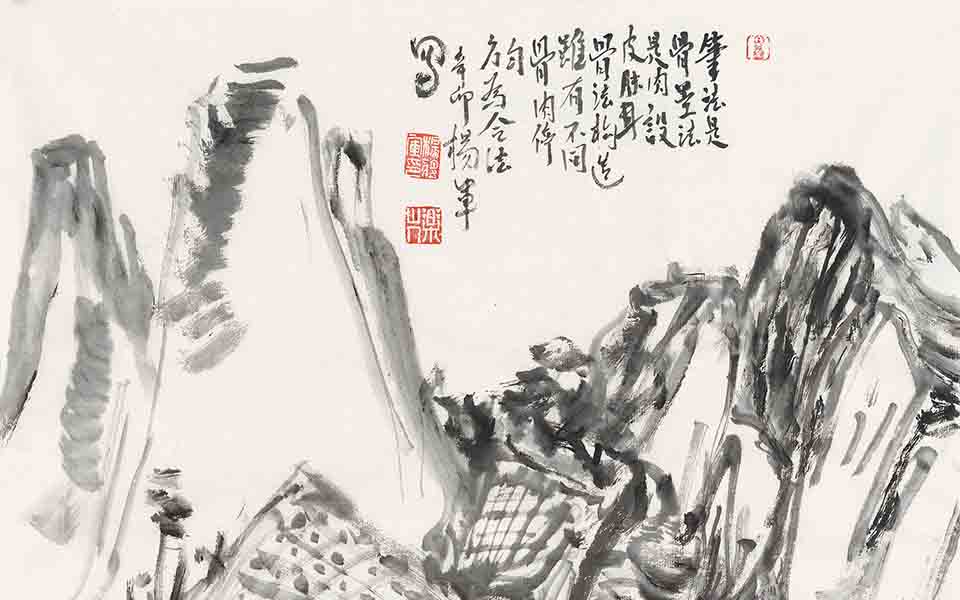 筆法是
骨墨法
是肉設
皮肤耳
骨法构造
雖有不同
骨肉停
匀
方為合法
辛卯楊軍
写